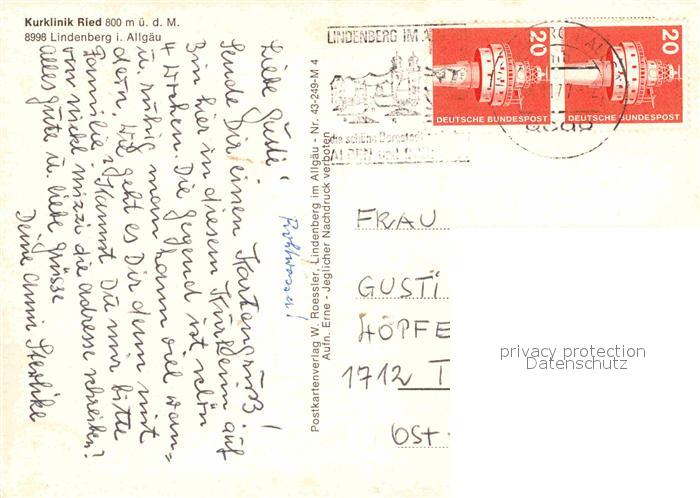 Kurklinik Ried 800 m ü. d. M.
8998 Lindenberg i. Allgäu
Liebe Gusti!
Sende Dir einen Kartengruß!
Bin hier in diesem Kurheim auf
4 Wochen. Die Gegend ist schön
u. ruhig man kann viel wan=
dern. Wie geht es Dir denn mit
Familie? Kannst Du mir bitte
von mizzi die adresse schreiben?
alles gute u. liebe grüsse
Deine anni
Postkartenverlag W. Roessler, Lindenberg im Allgäu - Nr. 43-249-M 4
Aufn. Erne - Jeglicher Nachdruck verboten
LINDENBERG IM A
die schöne Bergstadt
ALPEN
20
DEUTSCHE BUNDESPOST
20
DEUTSCHE BUNDESPOST
FRAU
GUSTI
HÖPFE
1712 T
OST-
privacy protection
Datenschutz